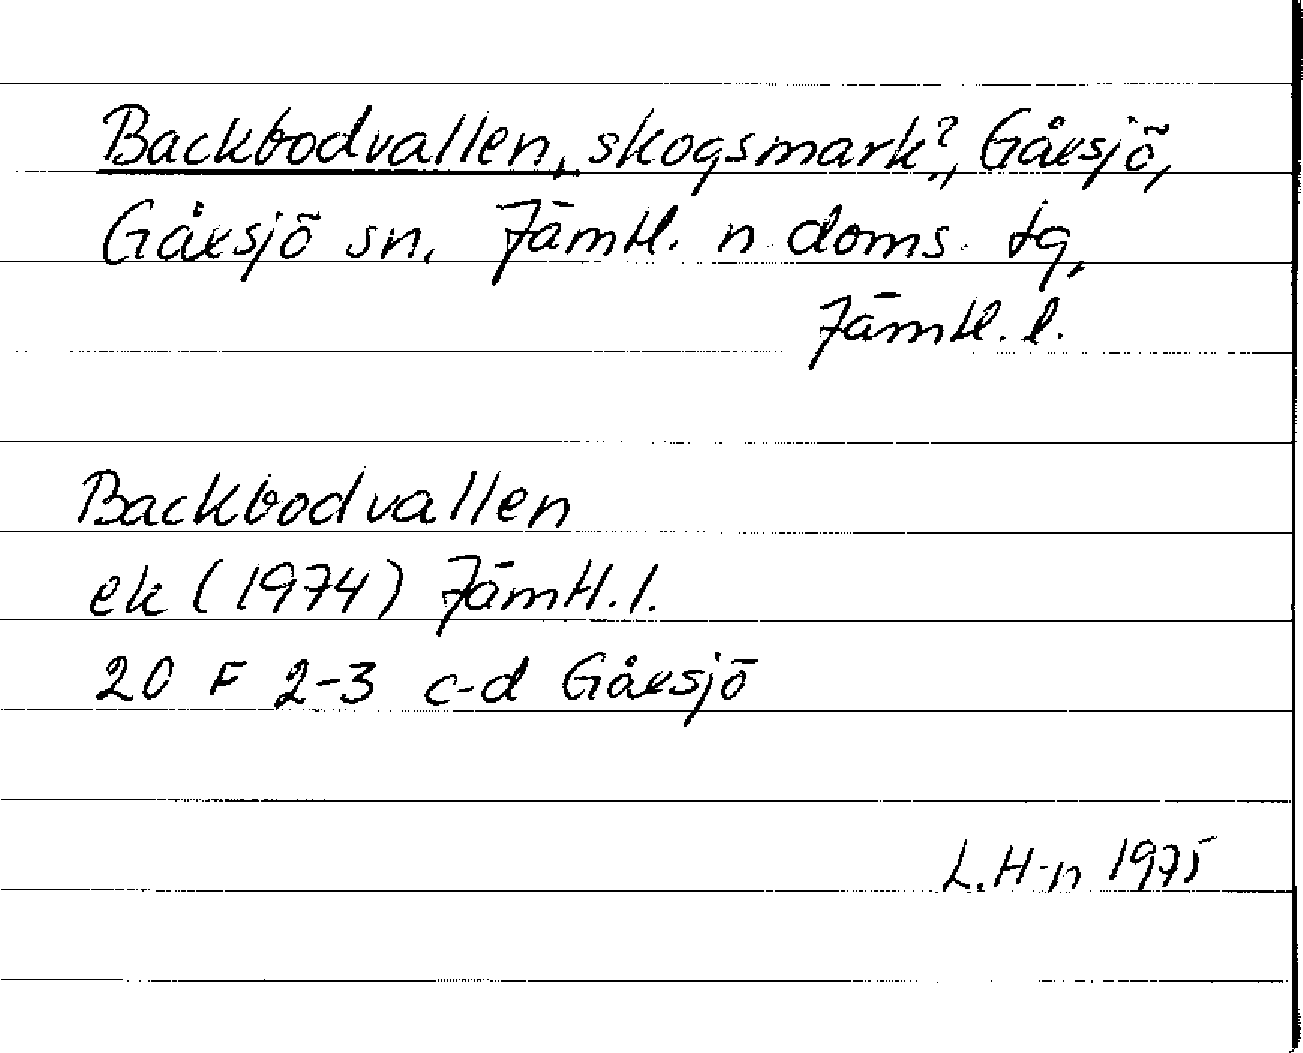 Backbodvallen, skogsmark?, Gåxsjö,
Gåxsjö sn. Jämtl. n. doms. tg,
Jämtl. l.
Backbodvallen
ek (1974) Jämtl. l.
20 F 2-3 c-d Gåxsjö
L. H-n 1975